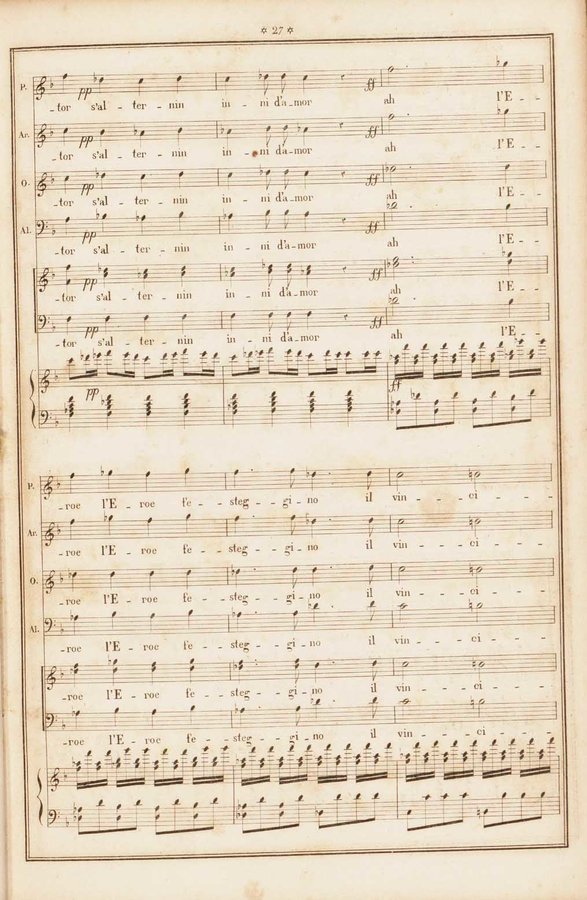 ✲ 27 ✲
P. pp ff
_tor s'al - ter - nin in - ni d'a_mor ah l'E - -
Ar. pp ff
_tor s'al - ter - nin in - ni d'a_mor ah l'E - -
O. pp ff
_tor s'al - ter - nin in - ni d'a_mor ah l'E - -
Al. pp ff
_tor s'al - ter - nin in - ni d'a_mor ah l'E - -
pp ff
_tor s'al - ter - nin in - ni d'a_mor ah l'E - -
pp ff
_tor s'al - ter - nin in - ni d'a_mor ah l'E - -
pp ff
P.
_roe l'E - roe fe - - steg - - gi - no il vin - - - ci - -
Ar.
_roe l'E - roe fe - - steg - - gi - no il vin - - - ci - -
O.
_roe l'E - roe fe - - steg - - gi - no il vin - - - ci - -
Al.
_roe l'E - roe fe - - steg - - gi - no il vin - - - ci - -
_roe l'E - roe fe - - steg - - gi - no il vin - - - ci - -
_roe l'E - roe fe - - steg - - gi - no il vin - - - ci - -